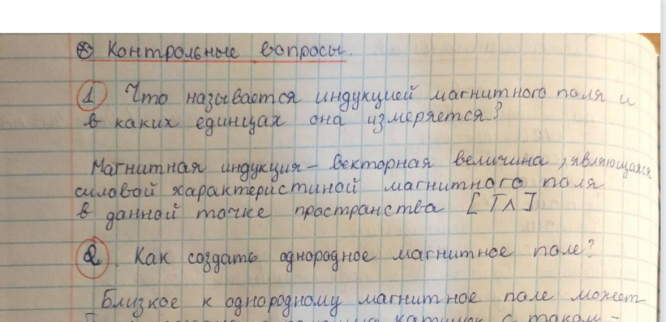 ⊛ Контрольные вопросы.
1 Что называется индукцией магнитного поля и
в каких единцах она измеряется?
Магнитная индукция – векторная величина, являющаяся
силовой характеристиной магнитного поля
в данной точке пространства [Тл]
2. Как создать однородное магнитное поле?
Близкое к однородному магнитное поле может
катушек с током –